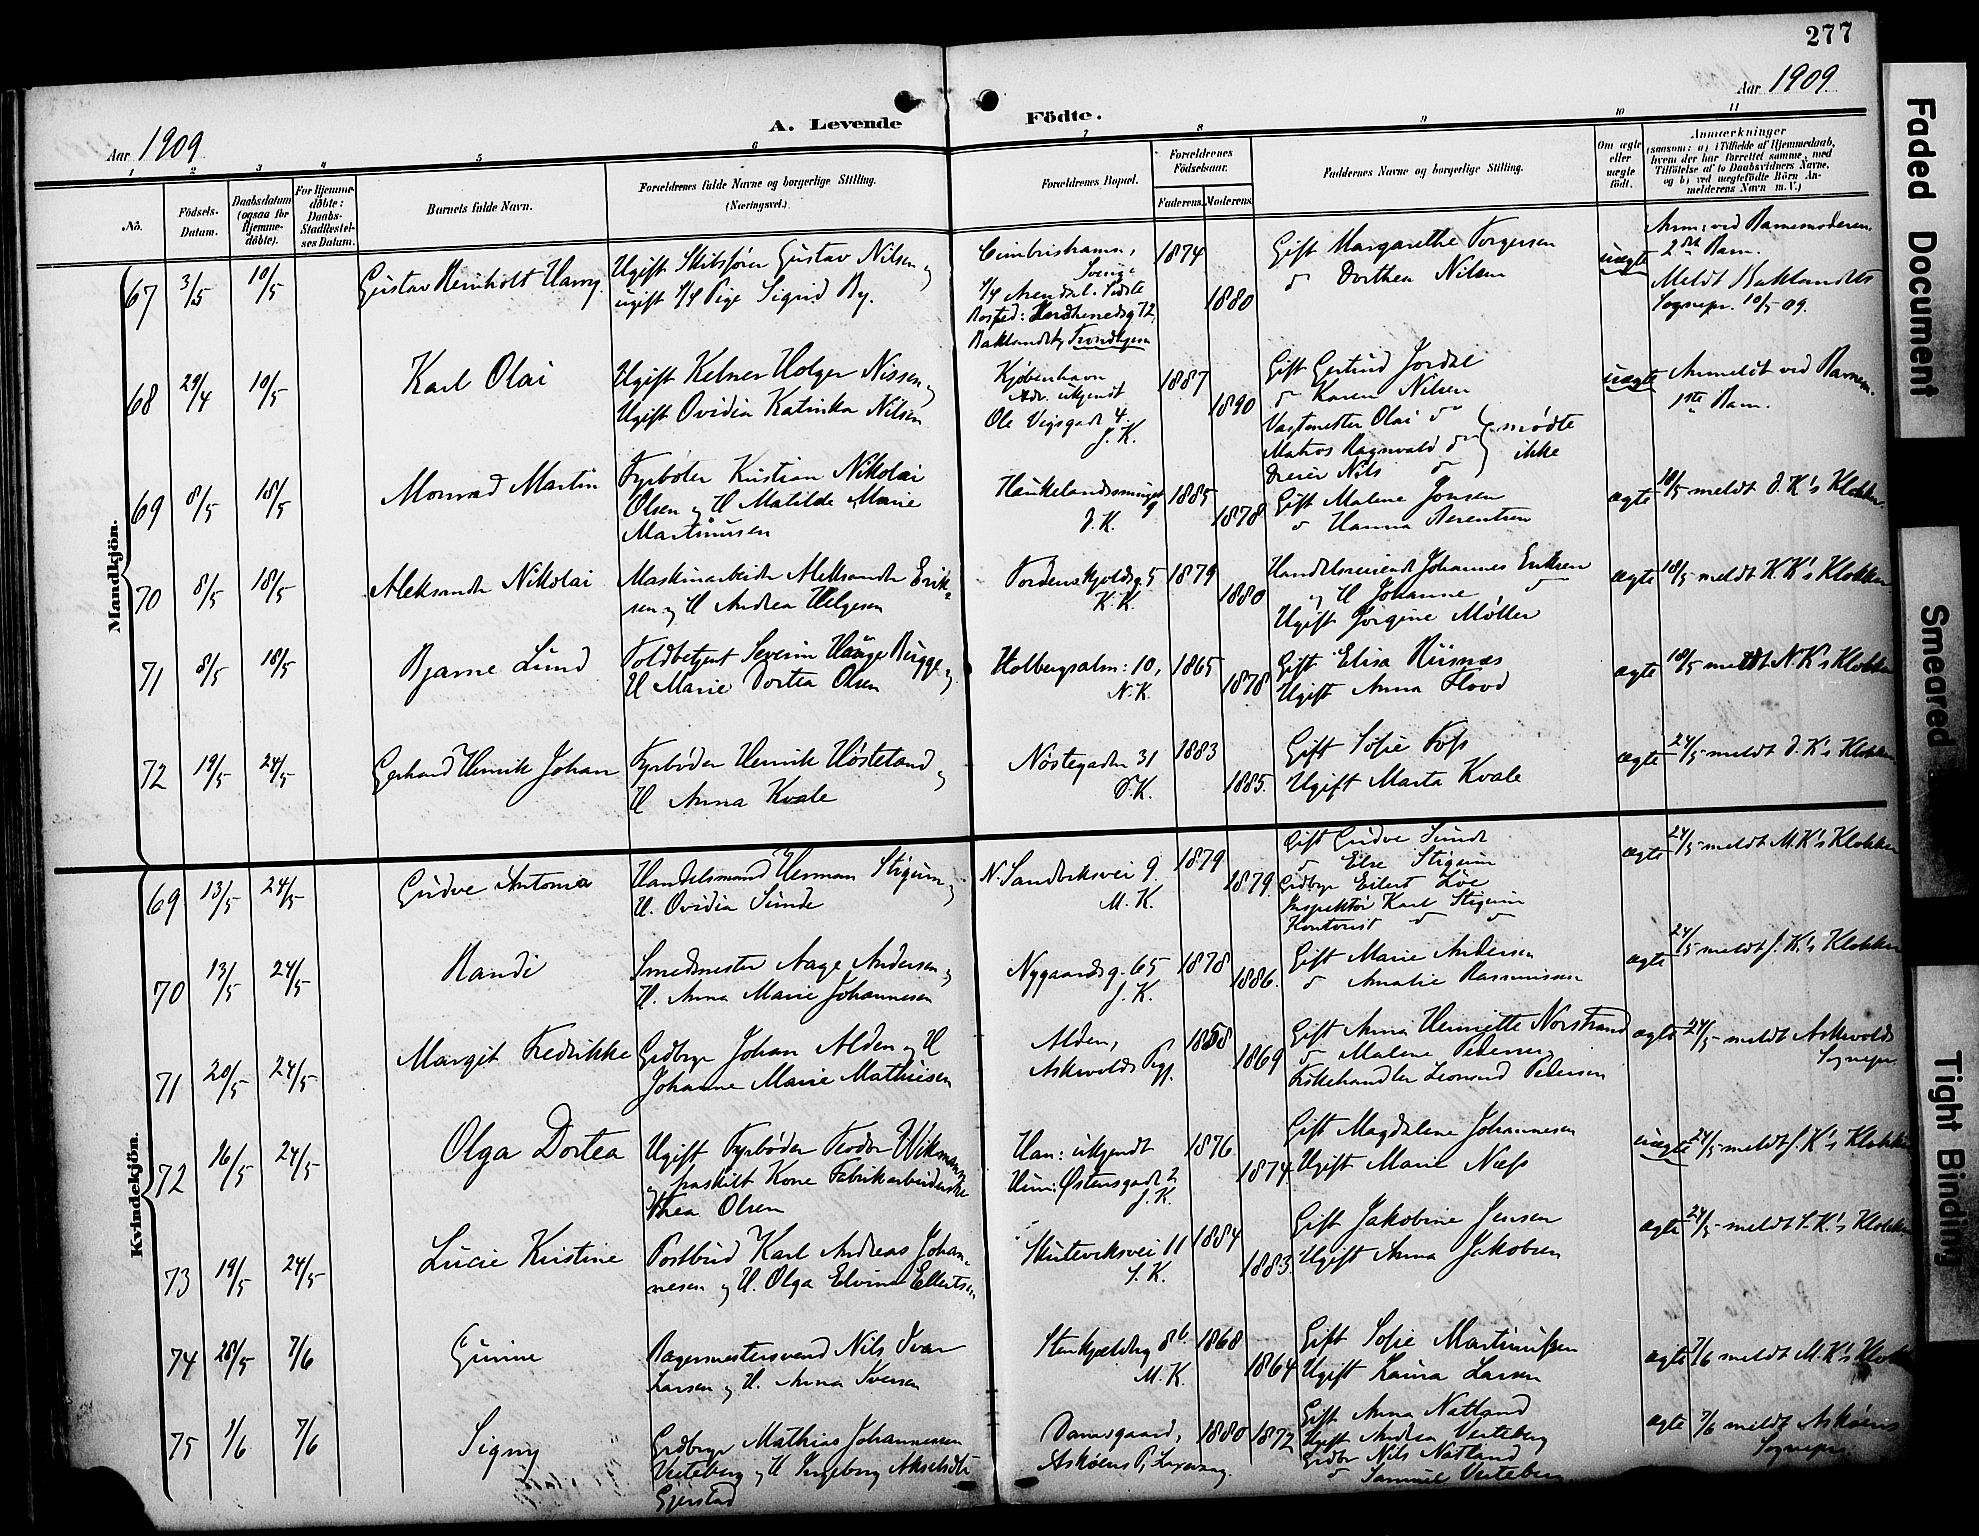 277
Aar 1909
Aar 1909
A. Levende Födte.
1 2 3 4 5 6 7 8 9 10 11
No.
Födsels-Datum.
Daabsdatum (ogsaa for Hjemme-döbte).
For Hjemme-döbte: Daabs-Stadfestel-ses Datum.
Barnets fulde Navn.
Forældrenes fulde Navne og borgerlige Stilling.
(Næringsvei.)
Forældrenes Bopæl.
Forældrenes Födselsaar.
Faderens. Moderens.
Faddernes Navne og borgerlige Stilling.
Om ægte eller uægte födt.
Anmærkninger
(saasom: a) i Tilfælde af Hjemmedaab,
hvem der har forrettet samme, med
Tilföielse af to Daabsvidners Navne,
og b) ved uægtefödte Börn An-
melderens Navn m. V.)
Mandkjön.
67 3/5 10/5 Gustav Reinholt Harry. Ugift Skibsfører Gustav Nilsen og
ugift Pige Sigrid By.
Cimbrishamn,
Sverige
Arendal. Sidste
Bosted:
Baklandet, Trondhjem
1874 1880
Gift Margarethe Torgersen
" Dorthea Nilsen
uægte
Anm: ved Barnemoderen.
2det Barn.
Meldt Baklandets
Sognepr. 10/5 09.
68 29/4 10/5 Karl Olai Ugift Kelner Holger Nissen og
Ugift Ovidia Katinka Nilsen
Kjøbenhavn
Adr. ukjendt
Ole Vigsgade 4.
J. K.
1887 1890
Gift Gertrud Jordal
" Karen Nilsen
Olai "
Matros Ragnvald "
Dreier Nils "
mødte
ikke
uægte
Anmeldt ved Barnem.
1ste Barn.
69 8/5 18/5 Monrad Martin Fyrbøter Kristian Nikolai
Olsen og H Matilde Marie
Martinusen
Haukelandssmuget 9
D. K.
1885 1878
Gift Malene Jonsen
" Hanna Berentsen
ægte 18/5 meldt D. K's Klokker.
70 8/5 18/5 Aleksander Nikolai Maskinarbeider Aleksander Erik-
sen og H Andrea Helgesen
Tordenskjoldsg. 5
K. K.
1879 1880
Handelsreisende Johannes Eriksen
og H Johanne "
Ugift Jørgine Møller
ægte 18/5 meldt K K's Klokker
71 8/5 18/5 Bjarne Lund Toldbetjent Severin Hauge Brügge og
H Marie Dortea Olsen
Holbergsalm: 10,
N. K.
1865 1878
Gift Elisa Riisnæs
Ugift Anna Flood
ægte 18/5 meldt N K's Klokker
72 19/5 24/5 Gerhard Henrik Johan Fyrbøder Henrik Høsteland og
H Anna Kvale
Nøstegaden 31
D. K.
1883 1885.
Gift Sofie Foss
Ugift Marta Kvale
ægte 24/5 meldt D. K's Klokker.
Kvindekjön.
69 13/5 24/5 Gudve Antonia Handelsmand Herman Stigum og
H. Ovidia Sunde
N. Sandviksvei 9.
M. K.
1879 1879.
Gift Gudve Sunde
" Else Stigum
Grdbrgr Eilert Løe
Inspektør Karl Stigum
Kontorist " "
ægte 24/5 meldt M. K's Klokker
70 13/5 24/5 Randi Smedmester Aage Andersen og
H. Anna Marie Johannesen
Nygaardsg. 65
J. K.
1878 1886.
Gift Marie Andersen
" Amalie Rasmussen
ægte 24/5 meldt J. K's Klokker
71 20/5 24/5 Margit Fredrikke Grdbrgr Johan Alden og H
Johanne Marie Mathiesen
Alden,
Askvolds Prgj.
1858 1869
Gift Anna Henriette Norstrand
" Malene Pedersen
Fiskehandler Leonard Pedersen
ægte 24/5 meldt Askvolds
Sognepr.
72 16/5 24/5 Olga Dortea Ugift Fyrbøder Teodor Wikmann
og fraskilt Kone Fabrikarbeiderske
Thea Olsen
Han: ukjendt
Hun: Østensgade 2
J. K.
1876 1874
Gift Magdalene Johannesen
Ugift Marie Næss
uægte 24/5 meldt J. K's Klokker
73 19/5 24/5 Lucie Kristine Postbud Karl Andreas Johan-
nesen og H. Olga Elvine Ellertsen
Skuteviksvei 11
S. K.
1884 1883.
Gift Jakobine Jensen
Ugift Anna Jakobsen
ægte 24/5 meldt S. K's Klokker
74 28/5 7/6 Gunne Bagermestersvend Nils Ivar
Larsen og H. Anna Iversen
Stenkjelderg 8b.
M. K.
1868 1864
Gift Sofie Martinussen
Ugift Laura Larsen
ægte 7/6 meldt M. K's Klokker
75 1/6 7/6 Signy Grdbrgr Mathias Johannessen
Verteberg og H Ingeborg Akselsdtr
Gjerstad
Damsgaard,
Askøens P,
1880 1872
Gift Anna Natland
Ugift Andrea Verteberg
Grdbr Nils Natland
" Samuel Verteberg
ægte 7/6 meldt Askøens
Sognepr.
Faded Document
Smeared
Tight Binding